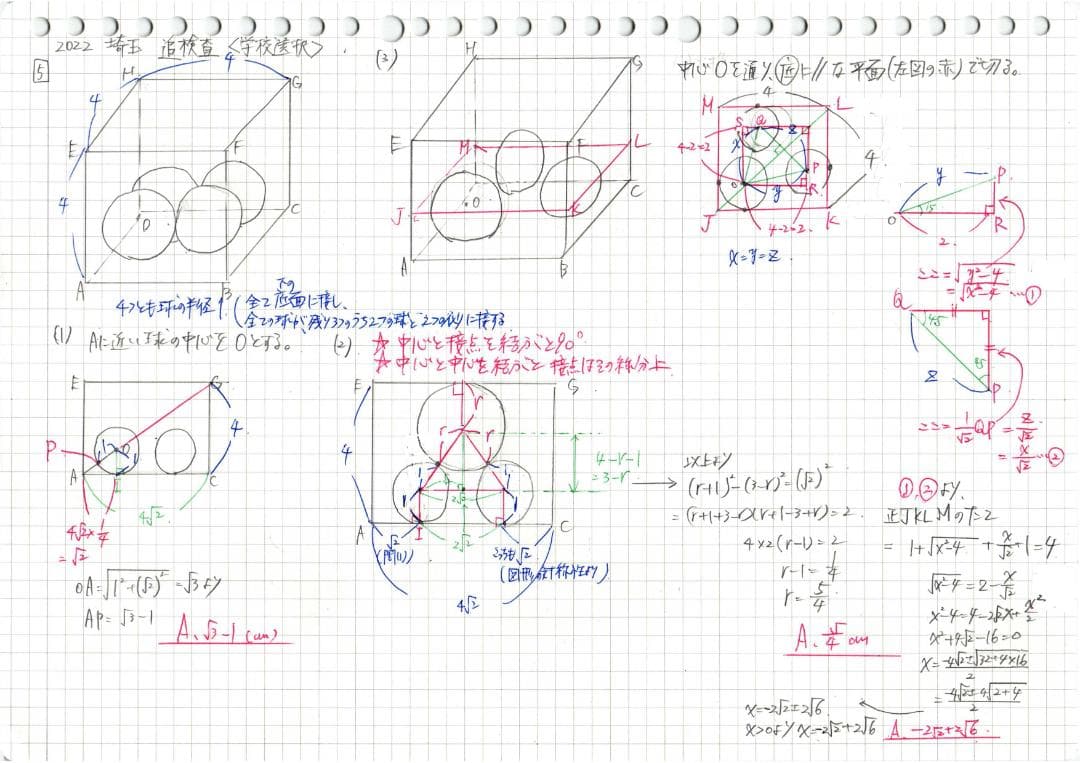 2022 埼玉 追検査 <学校選択>
5
H
4
G
4
E
F
4
O
C
A
B
4つとも球の半径1
下の
全て底面に接し、
全ての球が残り3つのうち2つの球と2つの側に接する
(1) Aに近い球の中心をOとする。
E
G
P
1
O
1
4
A
I
C
4√2
4√2×1/4
=√2
OA=√(1²+(√2)²)=√3より
AP=√3-1
A、√3-1 (cm)
(2) ☆中心と接点を結ぶと90°
☆中心と中心を結ぶと接点はその線分上
E
L
G
r
r
r
4
4-r-1
=3-r
1
1
1
1
2√2
A
I
C
√2
(問(1))
2√2
こちらも√2
(図形の対称性より)
4√2
以上より
(r+1)²-(3-r)²=(√2)²
=(r+1+3-r)(r+1-3+r)=2
4×2(r-1)=2
r-1=1/4
r=5/4
A、5/4 cm
(3)
H
G
E
M
F
L
J
O
K
C
A
B
中心Oを通り、底に//な平面(左図の赤)で切る。
4
M
L
S
Q
z
4-2=2
x
4
O
P
y
R
J
K
4-2=2
x=y=z
y
P
O
15
R
2
ここ=√(y²-4)
=√(x²-4) …①
Q
45
45
z
P
ここ=1/√2 QP=z/√2
=x/√2 …②
①,②より、
正JKLMのたこ
=1+√(x²-4)+x/√2+1=4
√(x²-4)=2-x/√2
x²-4=4-2√2x+x²/2
x²+4√2-16=0
x=(-4√2±√(32+4×16))/2
=(-4√2±4√(2+4))/2
x=-2√2±2√6
x>0より x=-2√2+2√6
A、-2√2+2√6